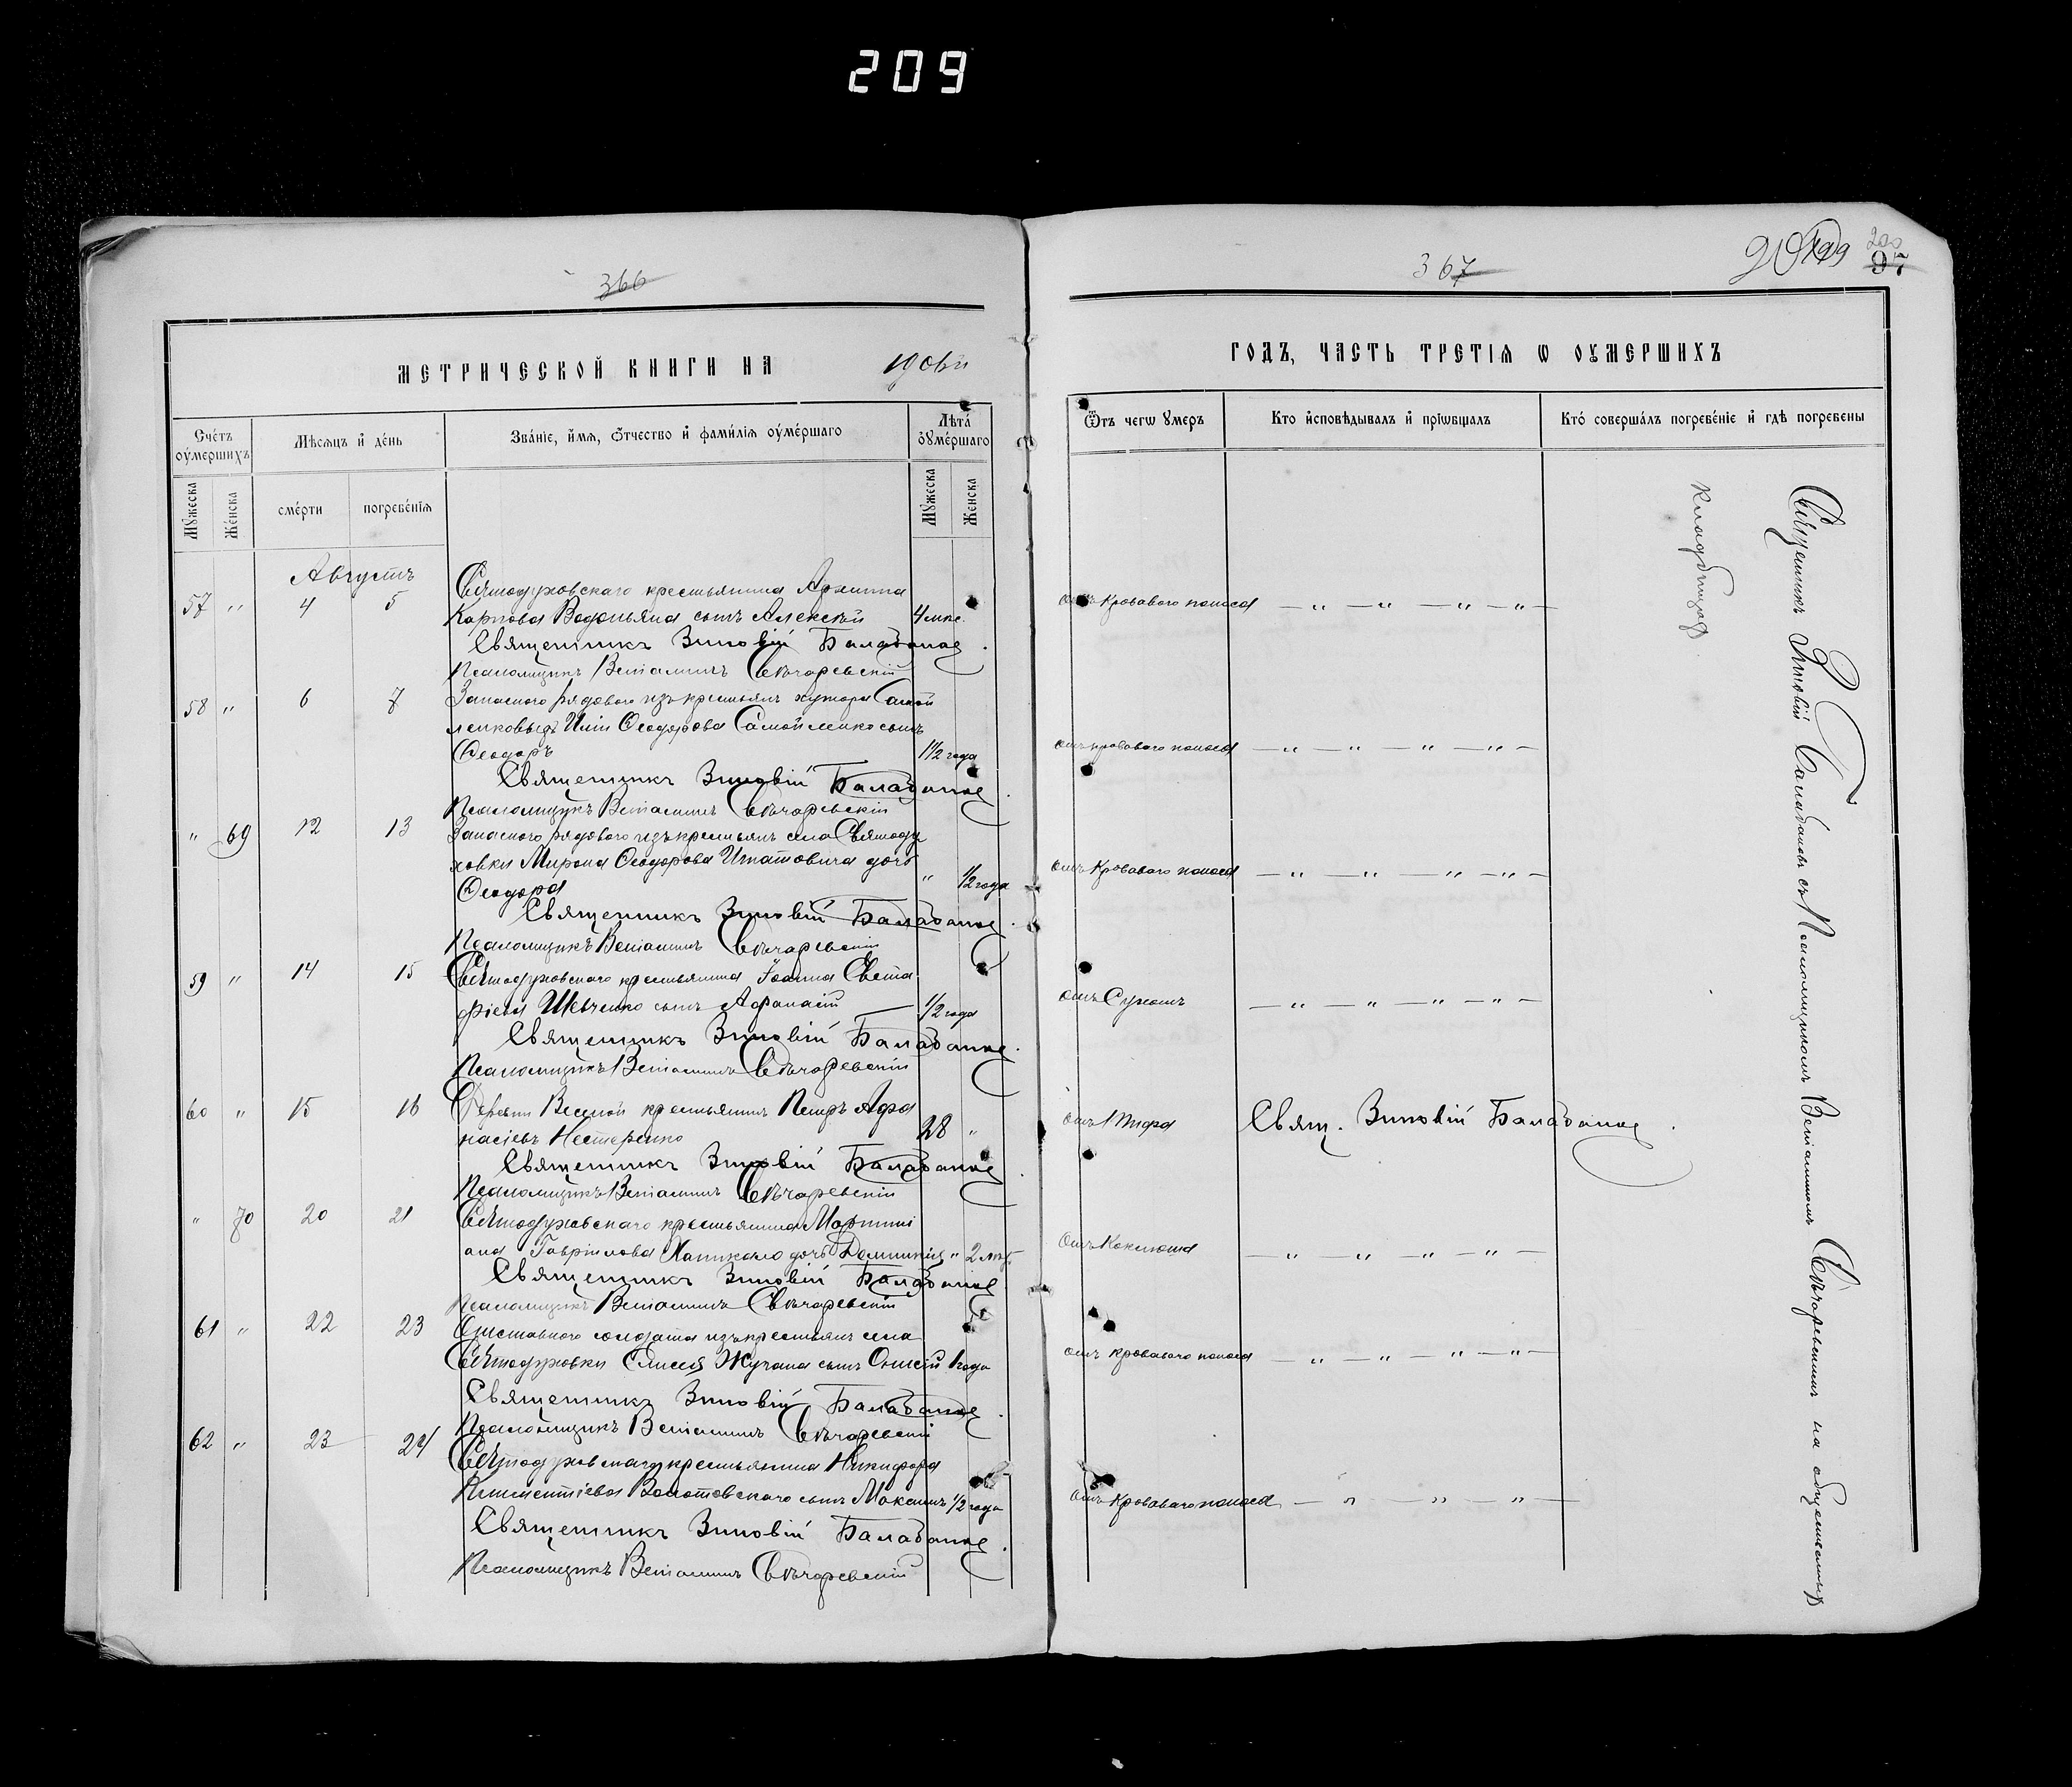 209
366
МЕТРИЧЕСКОЙ КНИГИ НА
Счетъ оумершихъ
Мѣсяцъ и день
Званіе, имя, отчество и фамилія оумершаго
Лѣта оумершаго
Мужеска
Женска
смерти
погребенія
Мужеска
Женска
Августъ
57 " 4 5 Святодуховскаго крестьянина Архипа
Карпова Водопьяна сынъ Алексѣй 4 мѣс.
Священникъ Зиновій Балабановъ
Псаломщикъ Веніаминъ Свѣчаревскій
58 " 6 7 Запаснаго рядового изъ крестьянъ хутора Самой
ленковыхъ Иліи Ѳеодорова Самойленко сынъ
Ѳеодоръ 1 1/2 года
Священникъ Зиновій Балабановъ
Псаломщикъ Веніаминъ Свѣчаревскій
" 69 12 13 Запаснаго рядового изъ крестьянъ села Святоду
ховки Мирона Ѳеодорова Игнатовича дочь
Ѳеодора " 1/2 года
Священникъ Зиновій Балабановъ
Псаломщикъ Веніаминъ Свѣчаревскій
59 " 14 15 Святодуховскаго крестьянина Іоанна Евста
фіева Шевченко сынъ Афанасій 1/2 года
Священникъ Зиновій Балабановъ
Псаломщикъ Веніаминъ Свѣчаревскій
60 " 15 16 Деревни Веселой крестьянинъ Петръ Афа
насіевъ Нестеренко 28 "
Священникъ Зиновій Балабановъ
Псаломщикъ Веніаминъ Свѣчаревскій
" 70 20 21 Святодуховскаго крестьянина Мартини
ана Гавріилова дочь Домникія " 2 лѣт.
Священникъ Зиновій Балабановъ
Псаломщикъ Веніаминъ Свѣчаревскій
61 " 22 23 солдата изъ крестьянъ села
Святодуховки Елисея Жучана сынъ 1 года
Священникъ Зиновій Балабановъ
Псаломщикъ Веніаминъ Свѣчаревскій
62 " 23 24 Святодуховскаго крестьянина Никифора
Климентіева сынъ Максимъ 1/2 года
Священникъ Зиновій Балабановъ
Псаломщикъ Веніаминъ Свѣчаревскій
367
97
ГОДЪ, ЧАСТЬ ТРЕТІЯ Ѡ ОУМЕРШИХЪ
Ѿтъ чегѡ умеръ
Кто исповѣдывалъ и пріѡбщалъ
Кто совершалъ погребеніе и гдѣ погребены
отъ кроваваго поноса — " — " — " — " —
отъ кроваваго поноса — " — " — " — " —
отъ кроваваго поноса — " — " — " — " —
отъ Сухотъ — " — " — " — " —
отъ Тифа Свящ. Зиновій Балабановъ
отъ Коклюша — " — " — " — " —
отъ кроваваго поноса — " — " — " — " —
отъ кроваваго поноса — " — " — " —
Священникъ Зиновій Балабановъ съ Псаломщикомъ Веніаминомъ Свѣчаревскимъ на общественныхъ
кладбищахъ